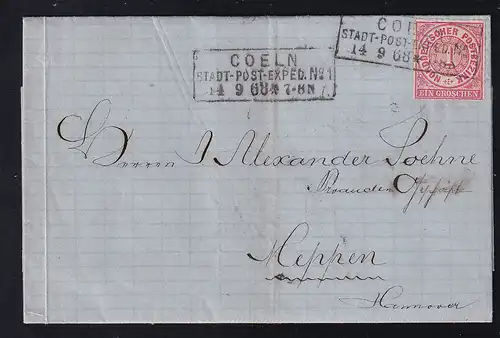 COELN
STADT-POST-EXPED. No 1
14 9 68 7-8N
STADT-POST-E
14 9 68
NORDDEUTSCHER POSTBEZIRK
EIN GROSCHEN
Herren J Alexander Soehne
Meppen
Hannover